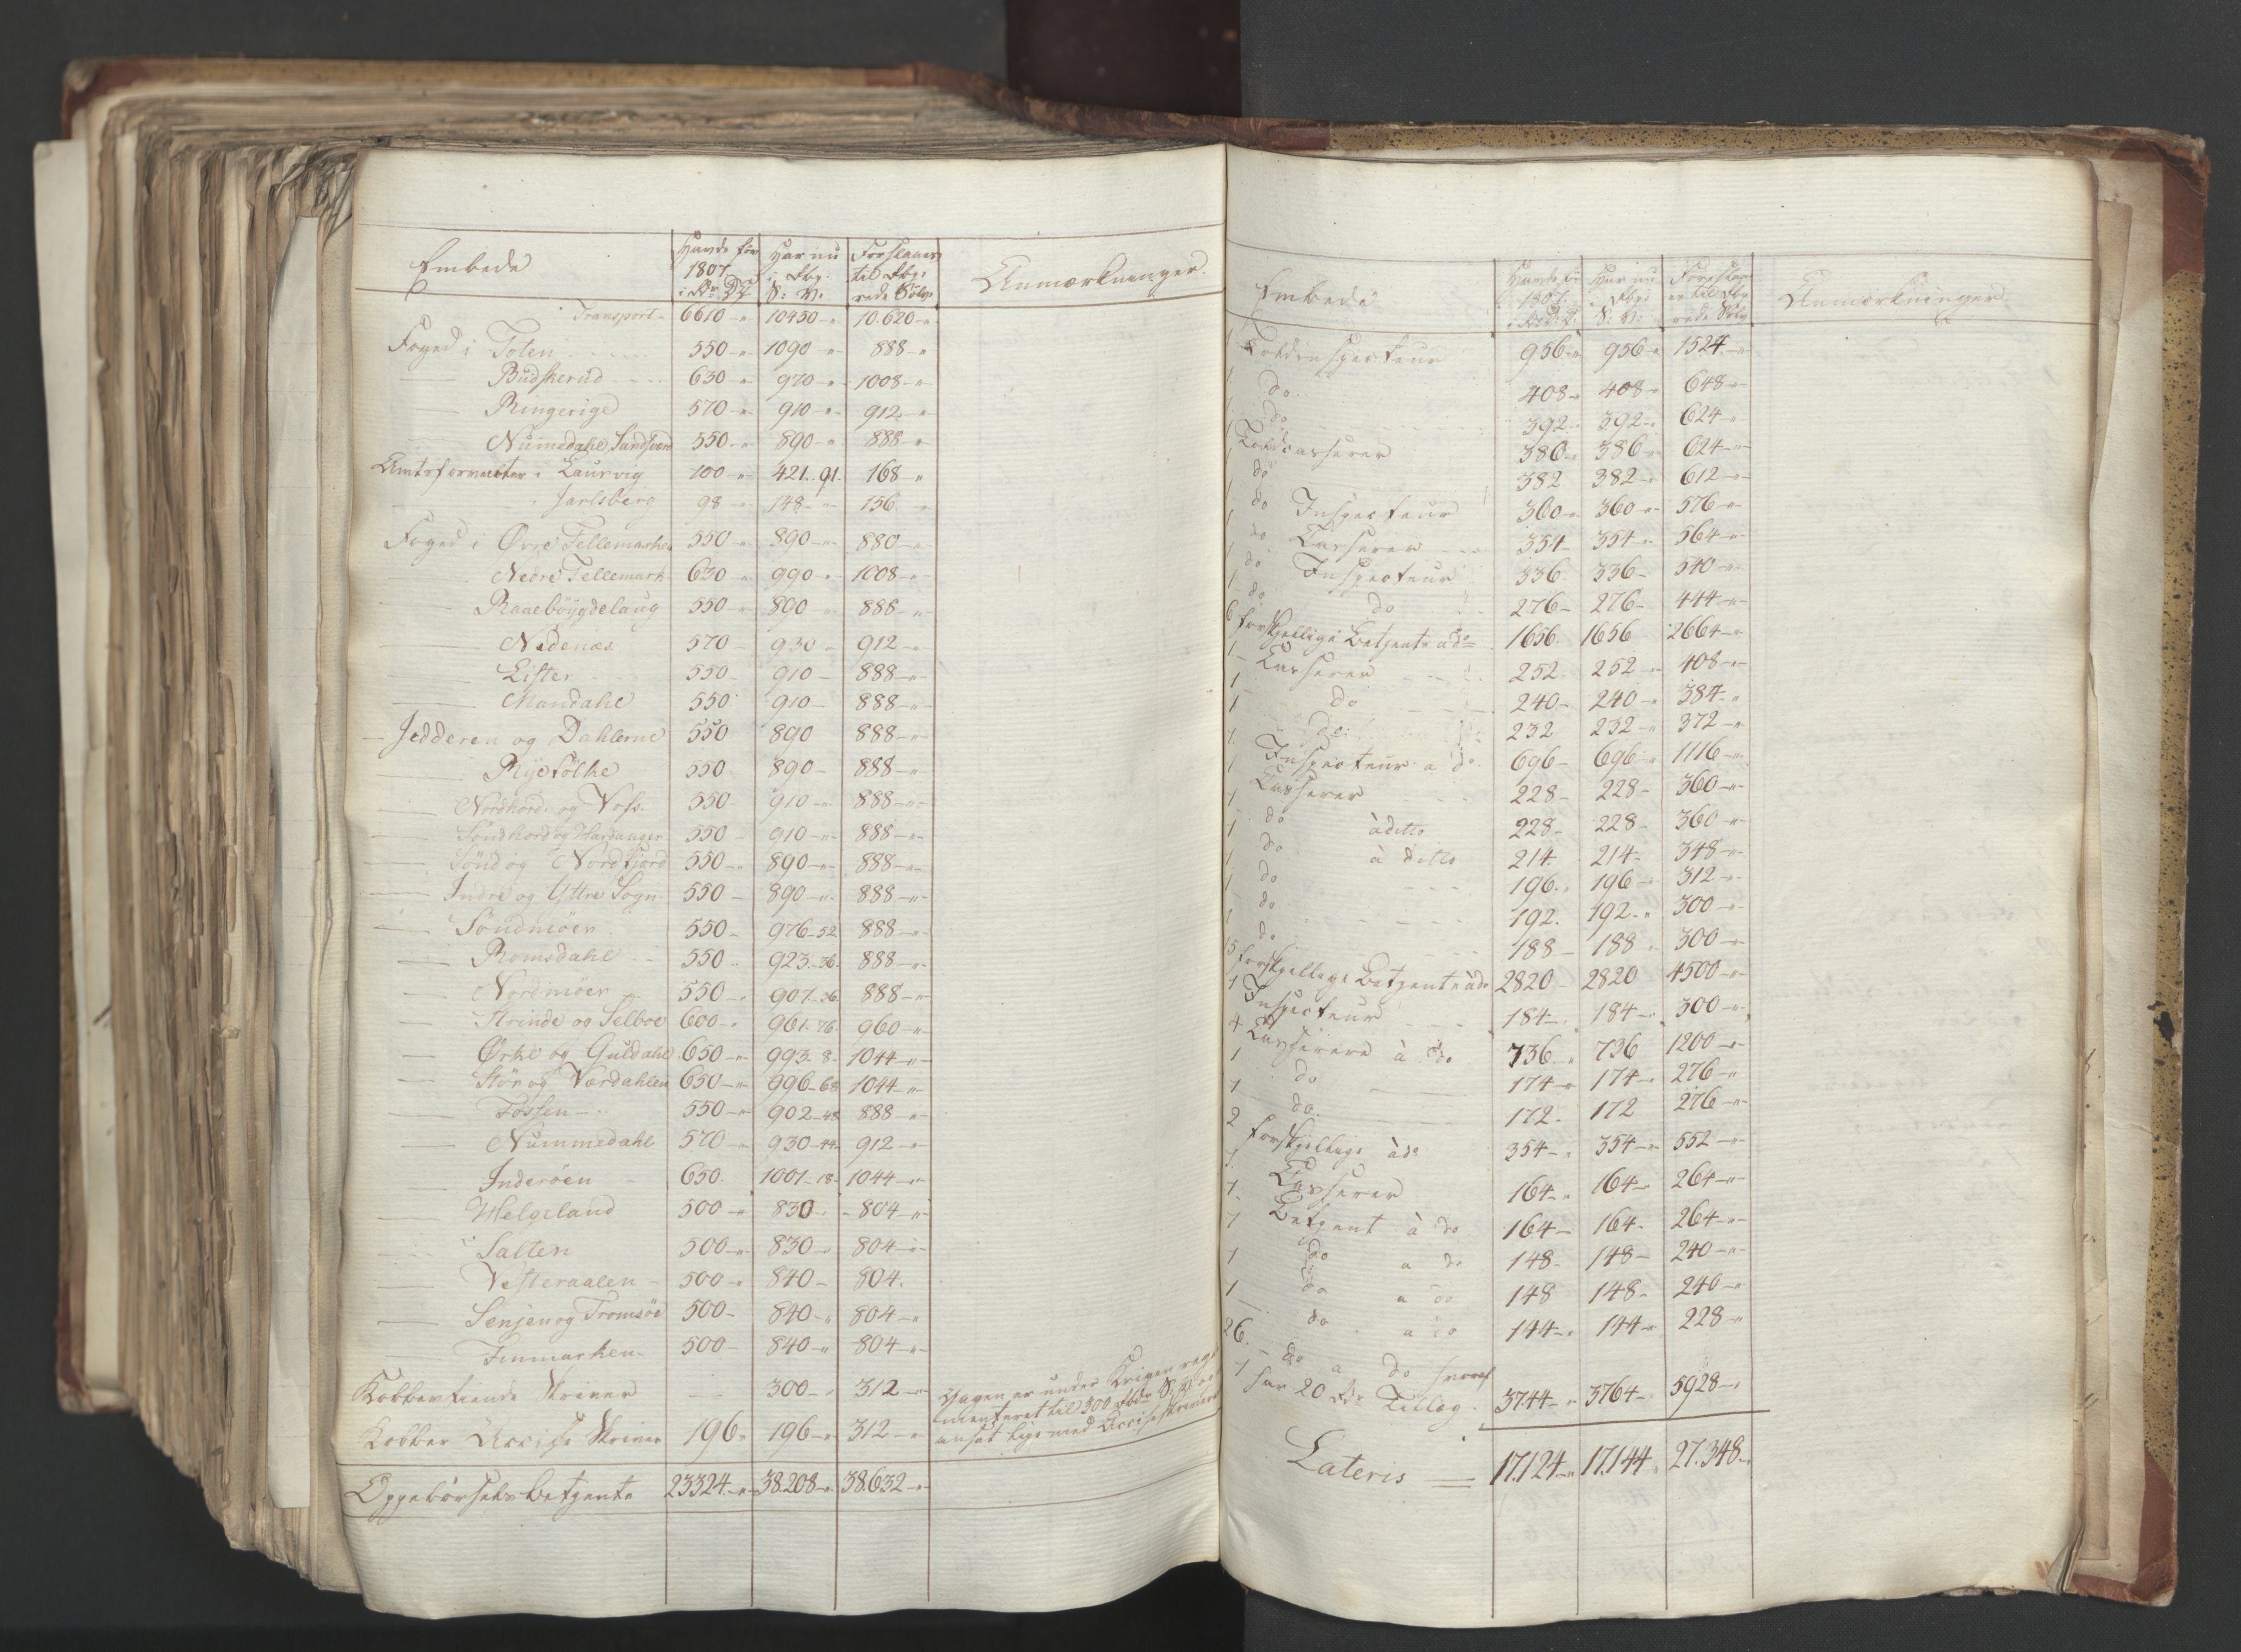 Embede | Havde før 1807 i Rr. DC | Har nu i Rbp. S: V. | Forslaaes til Rbp: rede Sølv | Anmærkninger.
Transport - 6610 -"- 10450 -"- 10.620 -"-
Foged i Toten 550 -"- 1090 -"- 888 -"
— Budskerud 630 -"- 970 -"- 1008 -"-
— Ringerige 570 -"- 910 -"- 912 -"
— Nummedahl Sandsværd 550 -"- 890 -"- 888 -"
Amtsforvalter i Laurvig 100 -"- 421.. 91. 168 "
— Jarlsberg 98 -"- 148 -"- 156
Foged i Øvre Tellemarken 550 -"- 890 -"- 880 -"-
— Nedre Tellemark 630 -"- 990 -"- 1008 -"-
— Raaebøygdelaug 550 -"- 890 -"- 888 -"-
— Nedenæs 570 - 930 - 912 -"
— Lister 550 - 910 - 888 -"-
— Mandahl 550 910 - 888 -"-
— Jedderen og Dahlerne 550 890 888 -"-
— Ryefølke 550. 890 - 888 -"-
— Nordhord. og Vofs. 550 - 910 -"- 888 -"-
— Søndhord og Hardanger 550 - 910 -"- 888 -"-
— Sønd og Nordfjord 550 -" 890 -"- 888 -"-
— Indre og Yttre Sogn 550 - 890 -"- 888 -"-
— Søndmöer 550 - 976 - 52 888 -"-
— Romsdahl 550 .. 923 - 36. 888 -"-
— Nordmöer 550 -" 907 - 36 888 -"-
— Strinde og Selboe 600 -" 961 - 76. 960 -"-
— Ørke og Guldahl 650 -"- 993 - 8 - 1044 -"-
— Stör og Værdahlen 650 -"- 996 - 68 1044 -"-
— Fossen 550 -"- 902 - 48 888 -"-
— Nummedahl 570 -"- 930 - 44. 912 -"
— Inderöen 650. 1001 - 18 - 1044 -"-
— Helgeland 500 -"- 830 -. - 804 -"-
— Salten 500 -"- 830 -" 804 -"-
— Vesteraalen 500 -" 840 - 804.
— Senjen og Tromsöe 500 - 840 -" 804 -"
— Finmarken 500 - 840 -" 804 -"-
Kobbertiende Skriver — 300 -" 312 -"- Gagen er under Krigen reg
menteret til 300 Rbdr S: V: og
ansat lige med Acciseskriveren
Kobber Accise Skriver 196 " 196 -"- 312 -"-
Oppebörsels betjente 23324 -"- 38.208 -"- 38.632 -"-
Embede | Havde før 1807. i Rr D.C. | Har nu i Rbp: S: V: | Foreslaaes til Rbp rede Sølv | Anmærkninger
1 Toldinspecteur 956 -"- 956 -" 1524 -"-
1 do. 408 -" 408 -" 648 -"-
1 do 392 -" 392 -" 624 -"-
1 Toldcasserer 386 -" 386 -" 624 -"-
1 do 382. 382 -" 612 -"-
1. do Inspecteur 360 -" 360 -"- 576 -"-
1 do Casserer 354 - 354 -" 564 -"-
1 do Inspecteur 336. 336 - 540 -"-
1 do do 276 - 276 - 444 -"-
6 forskjellige Betjente a do 1656. 1656 2664 -"-
1 - Casserer 252. 252 -" 408 -"-
1 do 240 - 240 -" 384 -"
1 do: 232 232 -" 372 -"-
1. Inspecteur a do. 696 - 696 -" 1116 -"-
1 Casserer 228 - 228 - 360 -"-
1 do à ditto 228 - 228 - 360 -"-
1 do à ditto 214. 214 - 348 -"-
1 do 196 ." 196 -" 312 -"-
1 do 192. 192 -" 300 -"-
1 do 188 - 188 -" 300 -"-
15 forskjellige Betjente àdo 2820 - 2820 4500 -"-
1 Inspecteur 184 -" 184 -" 300 -"-
4 Casserere à do 736 -" 736 1200 -"-
1 do 174 -" 174 -" 276 -"-
1 do. 172 - 172 276 -"-
2 forskjellige àdo 354 -" 354 -" 552 -"-
1 Casserer 164 -" 164 -" 264 -"-
1. Betjent à do 164 - 164 - 264 -"-
1 do a do 148 - 148 - 240 -"-
1 do a do 148 148 - 240 -"-
1 do a do 144 -" 144 -" 228 -"-
26. — do a do hvoraf
1 har 20 Rdr Tillæg. 3744 -" 3764 -" 5928 -"
Lateris = 17.124 -"- 17.144 " 27.348 -"